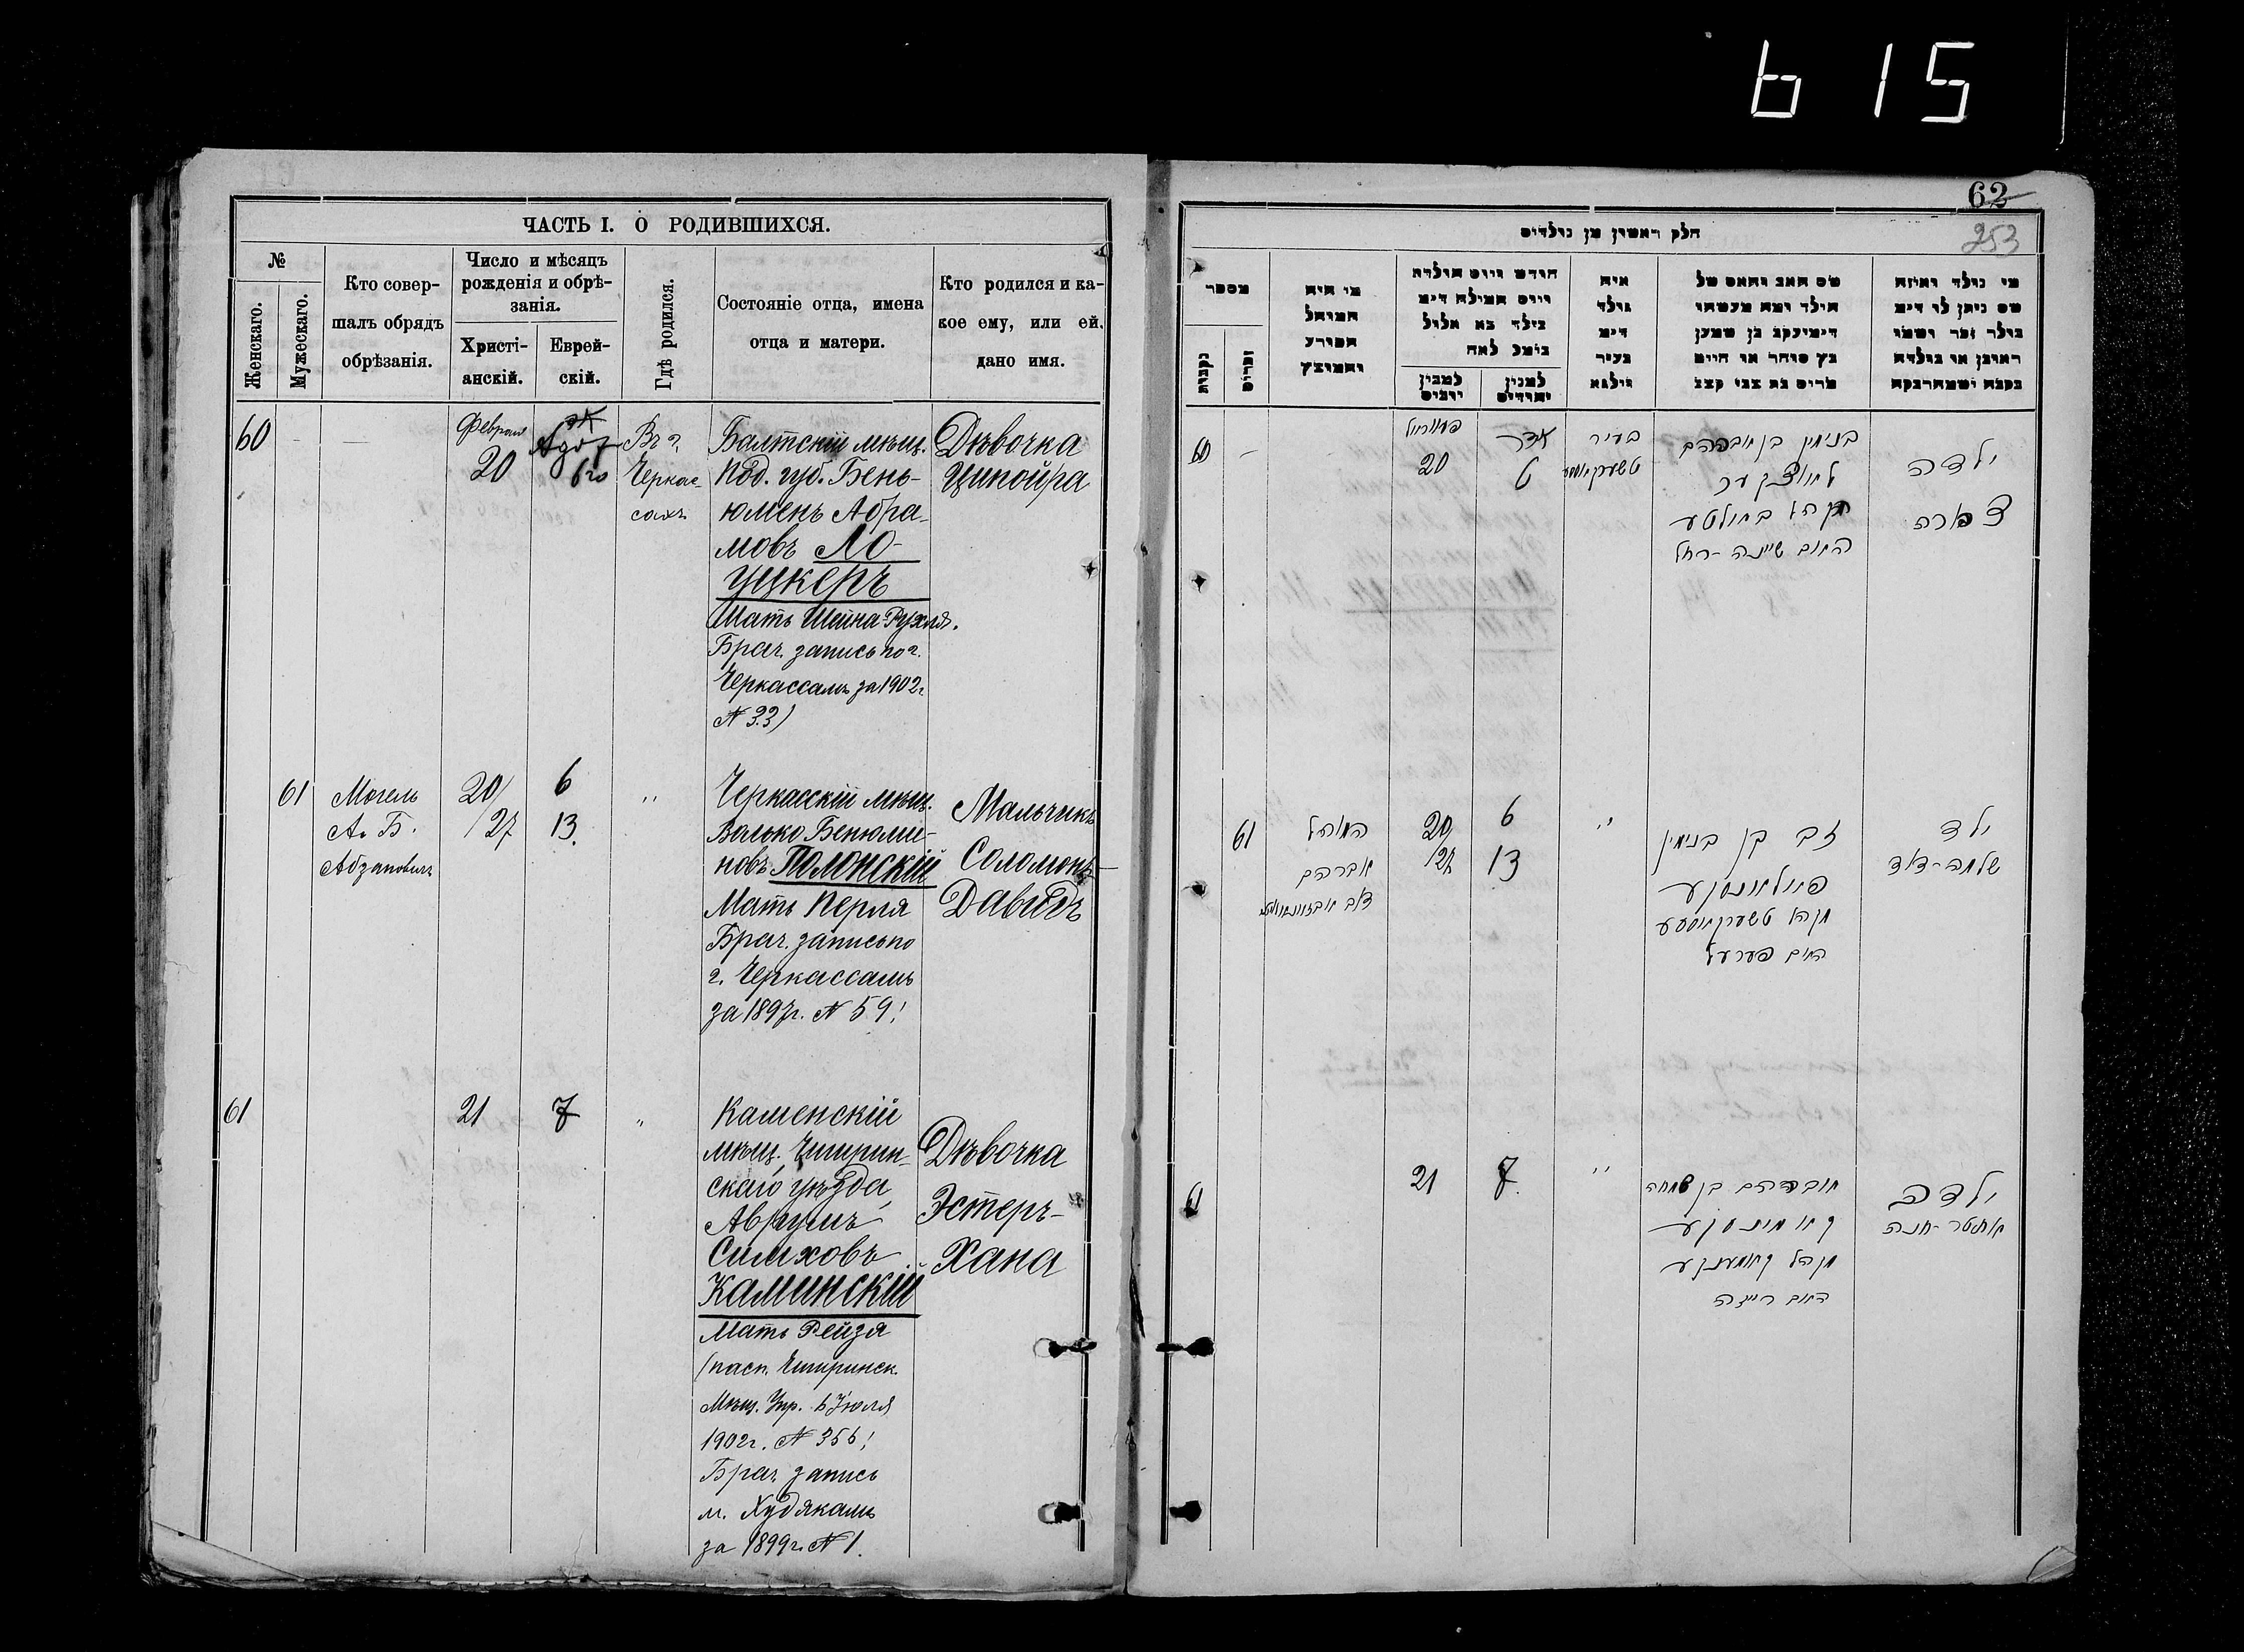 615
62
253
ЧАСТЬ I. О РОДИВШИХСЯ.
№
Женскаго.
Мужескаго.
Кто совер-
шалъ обрядъ
обрѣзанія.
Число и мѣсяцъ
рожденія и обрѣ-
занія.
Христі-
анскій.
Еврей-
скій.
Гдѣ родился.
Состояніе отца, имена
отца и матери.
Кто родился и ка-
кое ему, или ей,
дано имя.
60
Феврал
20
6го
Въ г.
Черкас-
сахъ
Балтскій мѣщ.
Под. губ. Бень-
юменъ Абра-
мовъ ЛО-
УЦКЕРЪ
Мать Шейна-Рухля.
Брач. запись по г.
Черкассамъ за 1902 г.
№ 33)
Дѣвочка
Ципойра
61
Могель
А. Б.
20/
/27
6
13.
"
Черкасскій мѣщ.
Волько Бенюми-
новъ ПОЛОНСКІЙ
Мать Перля
Брач. запись по
г. Черкассамъ
за 1897г. № 59!
Мальчикъ
Соломонъ-
Давидъ
61
21
7
"
Каменскій
мѣщ. Чигирин-
скаго уѣзда
Аврумъ
Симховъ
КАМИНСКІЙ
Мать Рейзя
(пасп. Чигиринск.
Мѣщ. Упр. 6 Іюля
1902г. № 356!
Брач. запись
м. Худякамъ
за 1899г. № 1.
Дѣвочка
Эстеръ-
Хана
חלק ראשון מן נולדים
מספר
נקבות
זכרים
מי היה
המוהל
והמוצץ
חודש ויום הולדת
ויום המילה
למנין
יהודים
איה
נולד
בעיר
ווילנא
שם האב והאם של
הילד
דימיעקב בן שמעון
כץ סוחר או חיים
מרים בת צבי קצב
ראובן או נולדה
60
20
6
אדר
בעיר
טשערקאססע
בנימין בן אברהם
לאוצקער
האם שיינה-רחל
ילדה
צפורה
61
המוהל
אברהם
20
/27
6
13
"
זב בן בנימין
פאלאנסקע
מק״הא טשערקאססע
האם פערעל
ילד
שלמה-דוד
61
21
7.
"
אברהם בן שמחה
קאמינסקע
האם רייזה
ילדה
אסתר-חנה